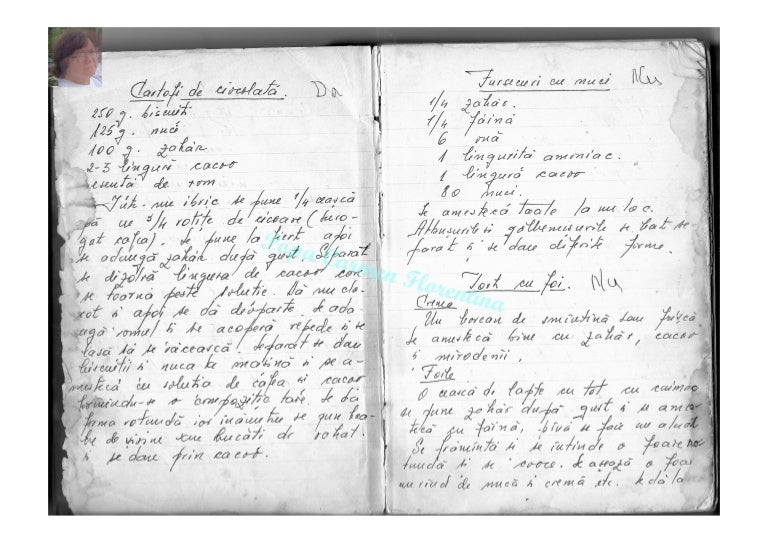 Cartofi de ciocolată. Da
250 g. biscuiti
125 g. nuci
100 g. zahăr
2-3 linguri cacao
esentă de rom
Într-un ibric se pune 1/4 cească
apă cu 3/4 rotite de cicoare (
cafea). Se pune la fiert apoi
se adaugă zahăr după gust. Separat
se dizolvă lingura de cacao care
se toarnă peste solutie. Dă un clo-
cot si apoi se dă deoparte. Se ada-
ugă romul si se acoperă repede si se
lasă să se răcească. Separat se dau
biscuitii si nuca la masină si se a-
mestecă cu solutia de cafea si cacao
formîndu-se o compozitie tare. Se dă
forma rotundă iar înăuntru se pun boa-
be de visine sau bucăti de rahat.
si se dau prin cacao.
Fursecuri cu nuci Nu
1/4 zahăr.
1/4 făină
6 ouă
1 linguriță amoniac.
1 lingură cacao
80 nuci.
Se amestecă toate la un loc.
Albusurile si gălbenusurile se bat se-
parat si se dau diferite forme.
Tort cu foi. Nu
Crema
Un borcan de smîntînă sau friscă
se amestecă bine cu zahăr, cacao
si mirodenii.
Foile
O cească de lapte cu tot cu caimac
se pune zahăr după gust si se ames-
tecă cu făină, pînă se face un aluat.
Se frămîntă si se întinde o foare ro-
tundă si se coace. Se asează o foae
un rînd de nucă si cremă etc. Se dă la
Carmen Florentina